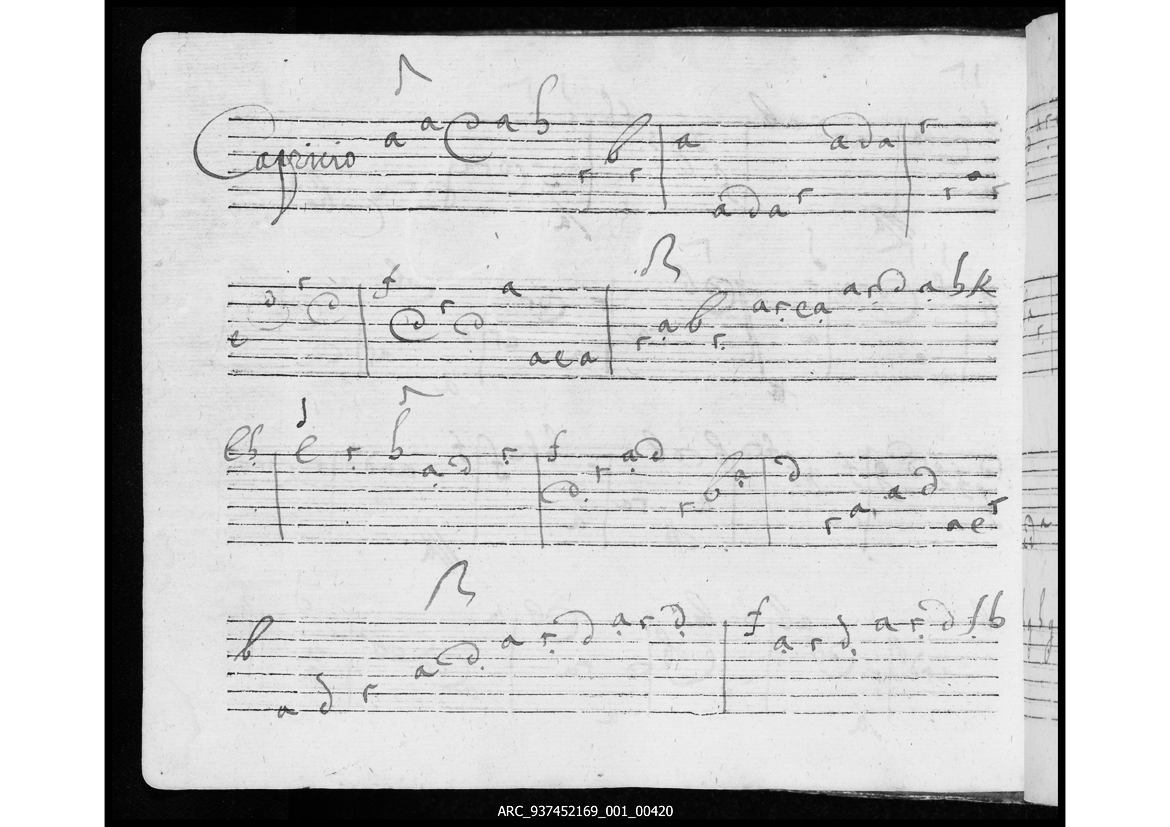 Capricio a a d a b r b r a a d a r a d a r r a r
e d r d f d r d a a e a r a b r a r e a a r d a b k
e b e r b a d r f d r a d r b a d r a a d a e r
b a d r a d a r d a r d f a r d a r d f b
ARC_937452169_001_00420